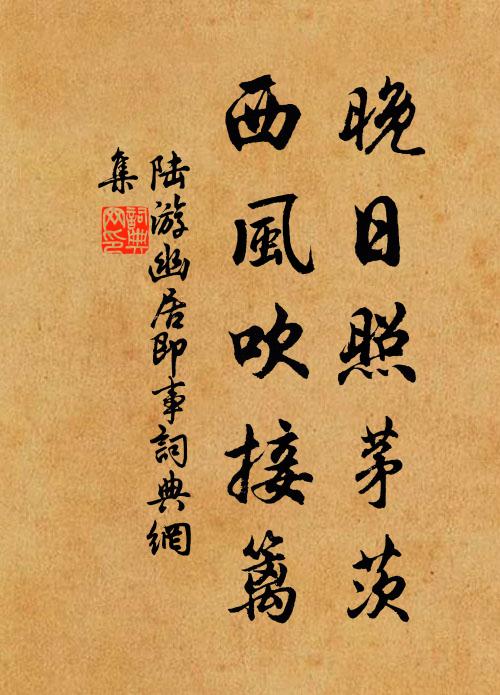 晚日照茅茨
西風吹接籬
陆游幽居即事詞典網
集
詞典
网印